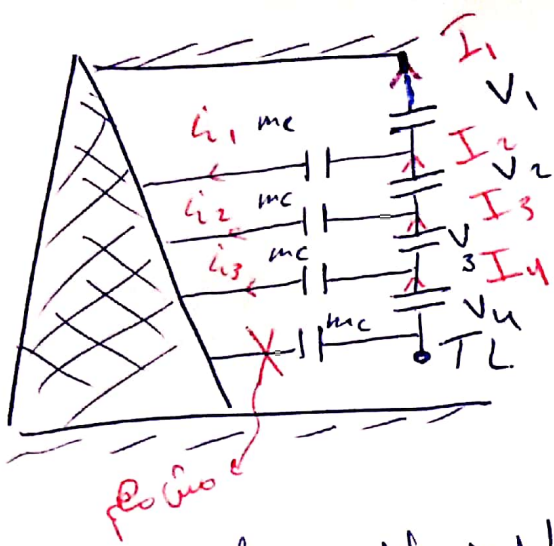 I1
V1
i1 mc
I2
V2
i2 mc
I3
V3
i3 mc
I4
V4
mc
TL